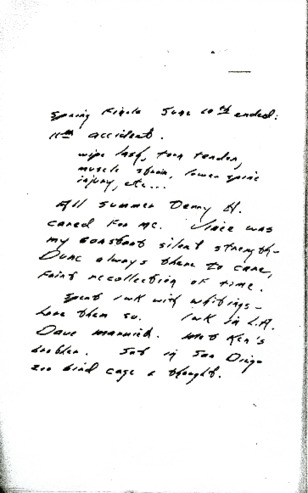 Spring Finals June 10th ended:
11th accident.
wipe last, torn tendon,
muscle strain, lower spine
injury, etc...
All summer Denny H.
cared for me. Vince was
my constant silent strength-
Dunc always there to care,
faint recollection of time.
Spent 1wk with writings-
love them so. 1wk in L.A.
Dave married. Ken's
Sat in San Diego
zoo bird cage & thought.